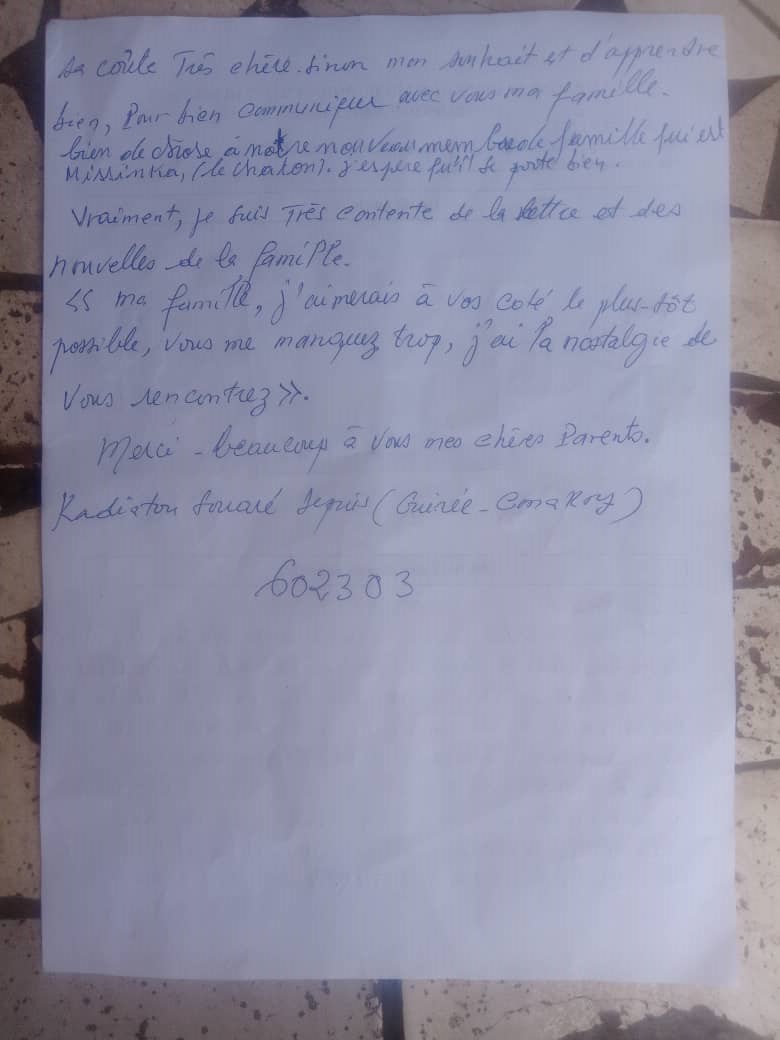 sa coûte Très chère. Sinon mon souhait et d'apprendre
bien, Pour bien communiquer avec vous ma famille.
bien de chose à notre nouveau membre de famille qui est
Missinka, (le chaton). j'espère qu'il se porte bien.
Vraiment, je suis Très contente de la lettre et des
nouvelles de la famille.
<< ma famille, j'aimerais à vos coté le plus-tôt
possible, vous me manquez trop, j'ai la nostalgie de
vous rencontrez >>.
Merci - beaucoup à vous mes chères Parents.
Kadiatou Souaré depuis (Guinée - Conakry)
602303